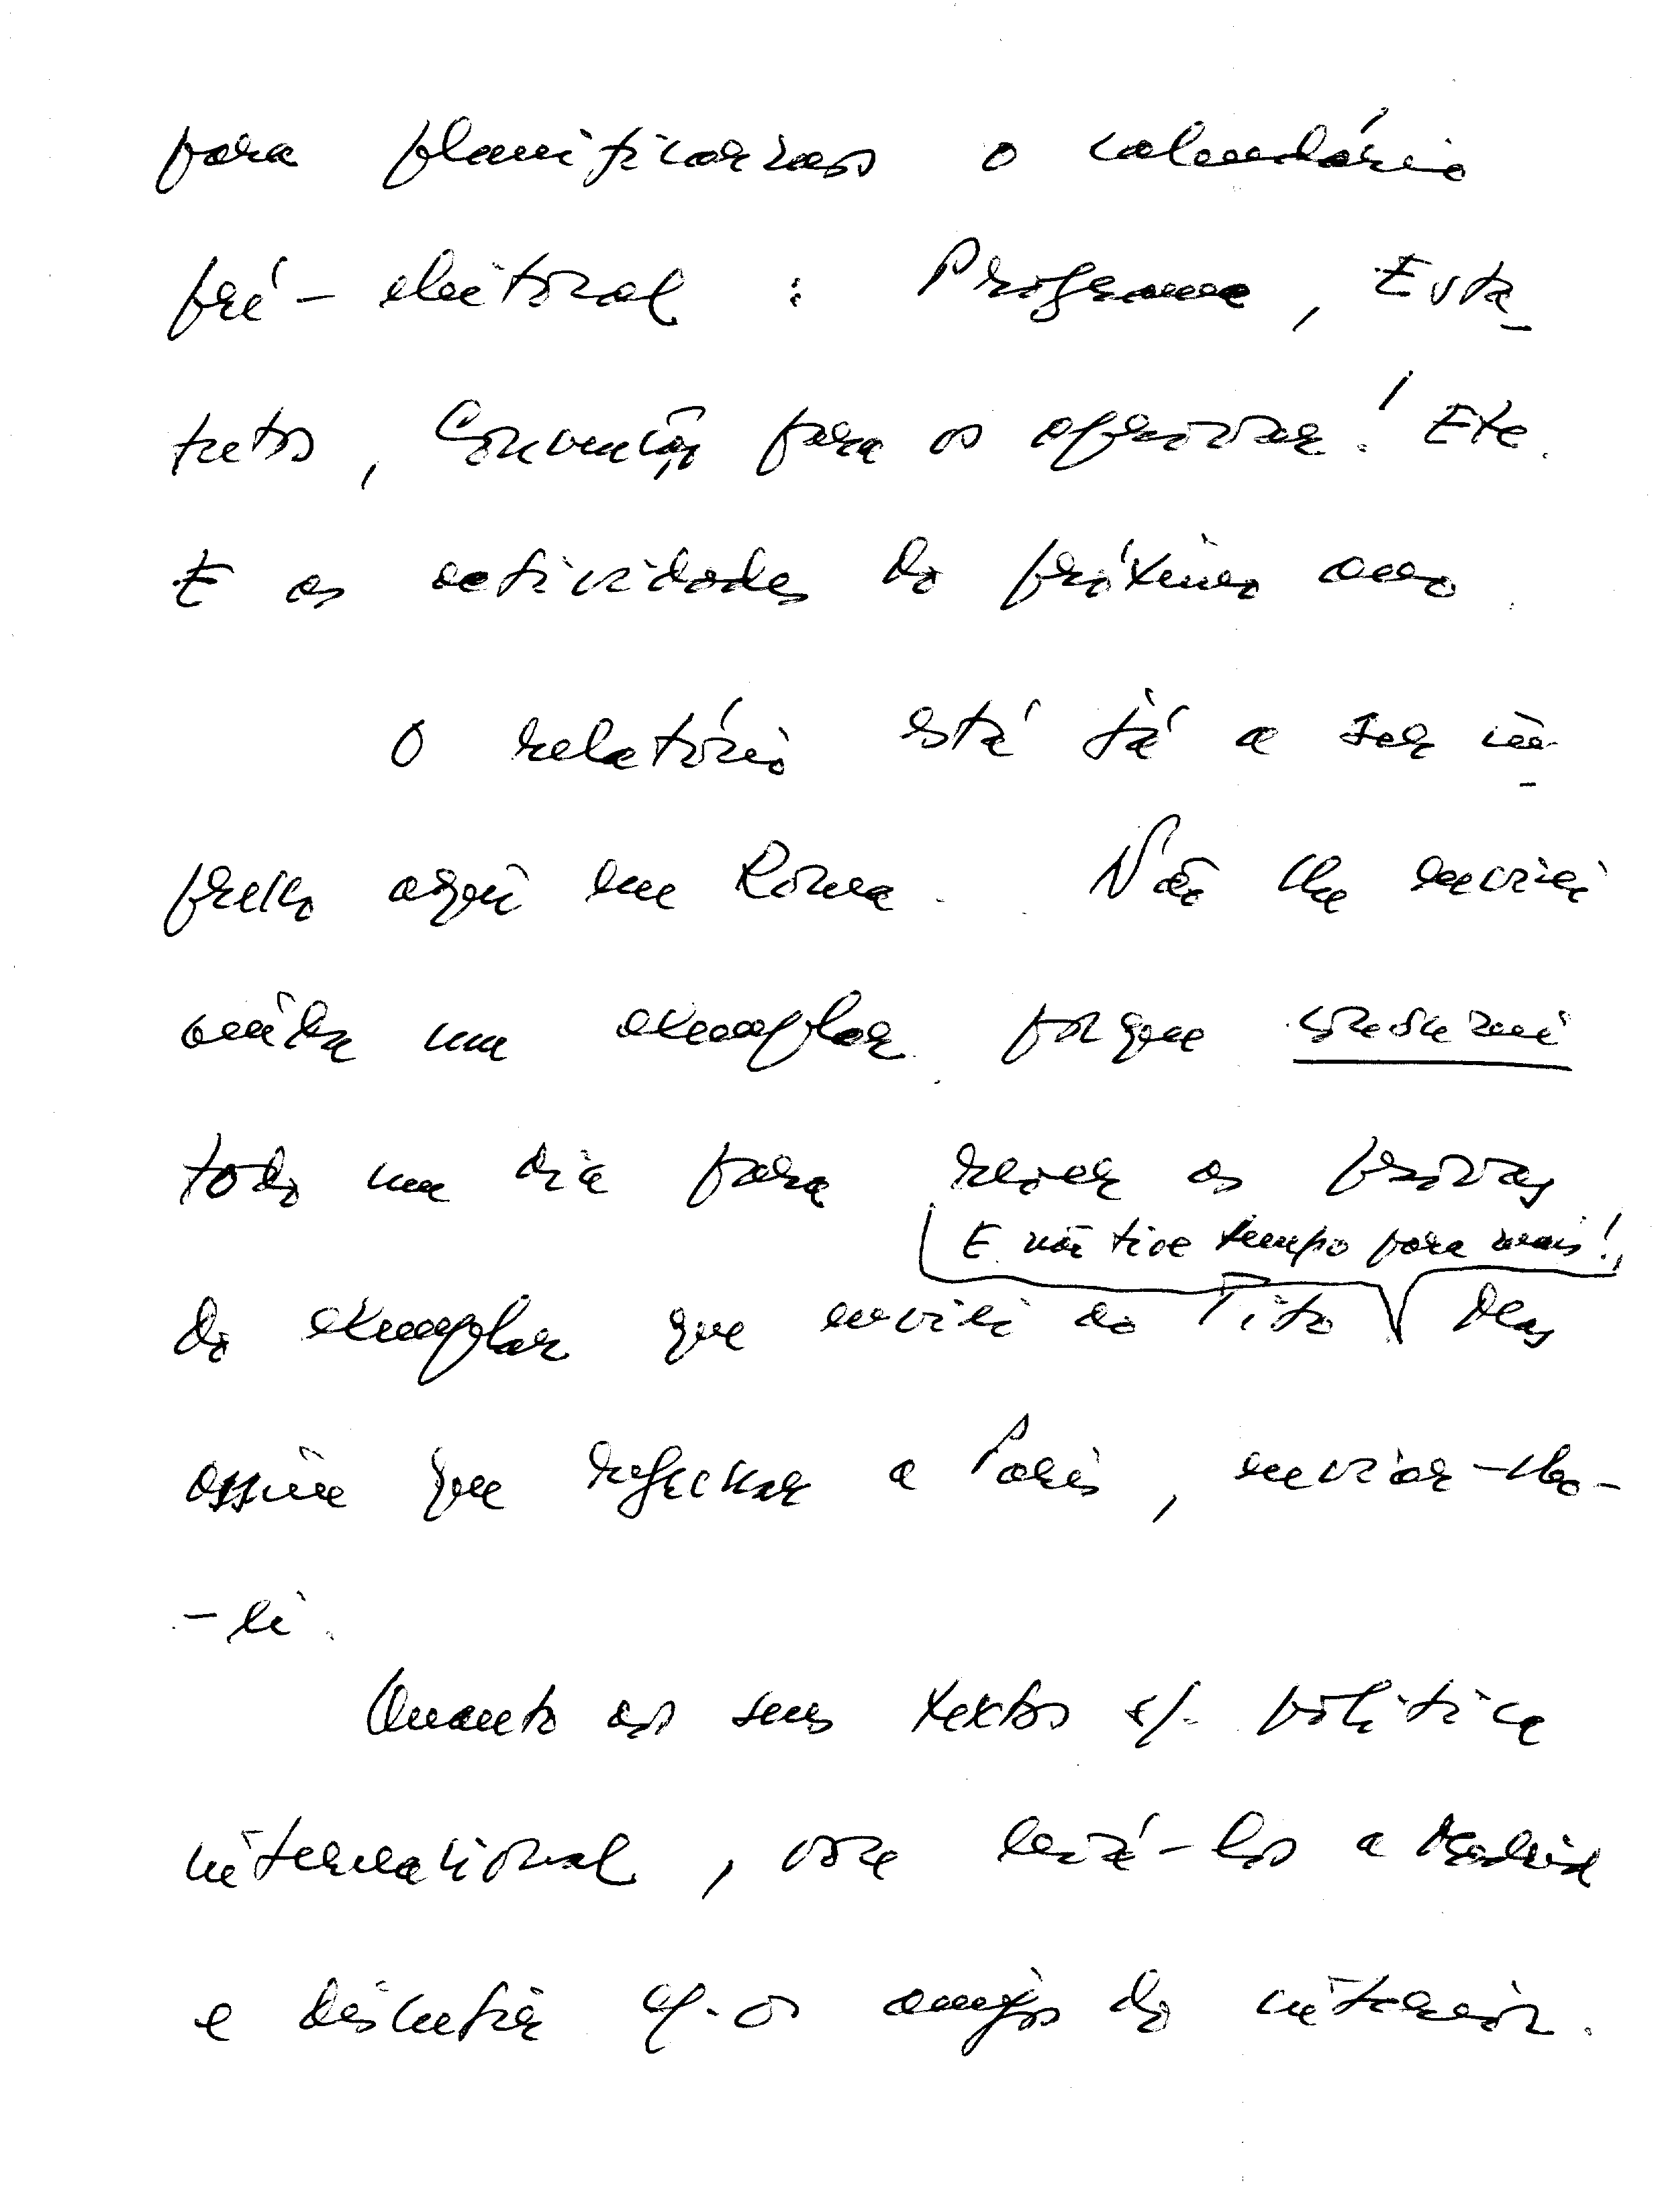 para planificarmos o calendário
pré-eleitoral : Programa, Esta-
tutos, Convenção para os aprovar! Etc.
E as actividades do próximo ano.
O relatório está já a ser im-
presso aqui em Roma. Não lhe enviei
ainda um exemplar porque consumi
todo um dia para rever as provas
E não tive tempo para mais!
do exemplar que enviei ao Tito. Mas
assim que regressar a Paris, enviar-lho-
-ei.
Quanto aos seus textos s/. política
internacional, vou levá-los a Madrid
e discutir c/. os amigos do interior.